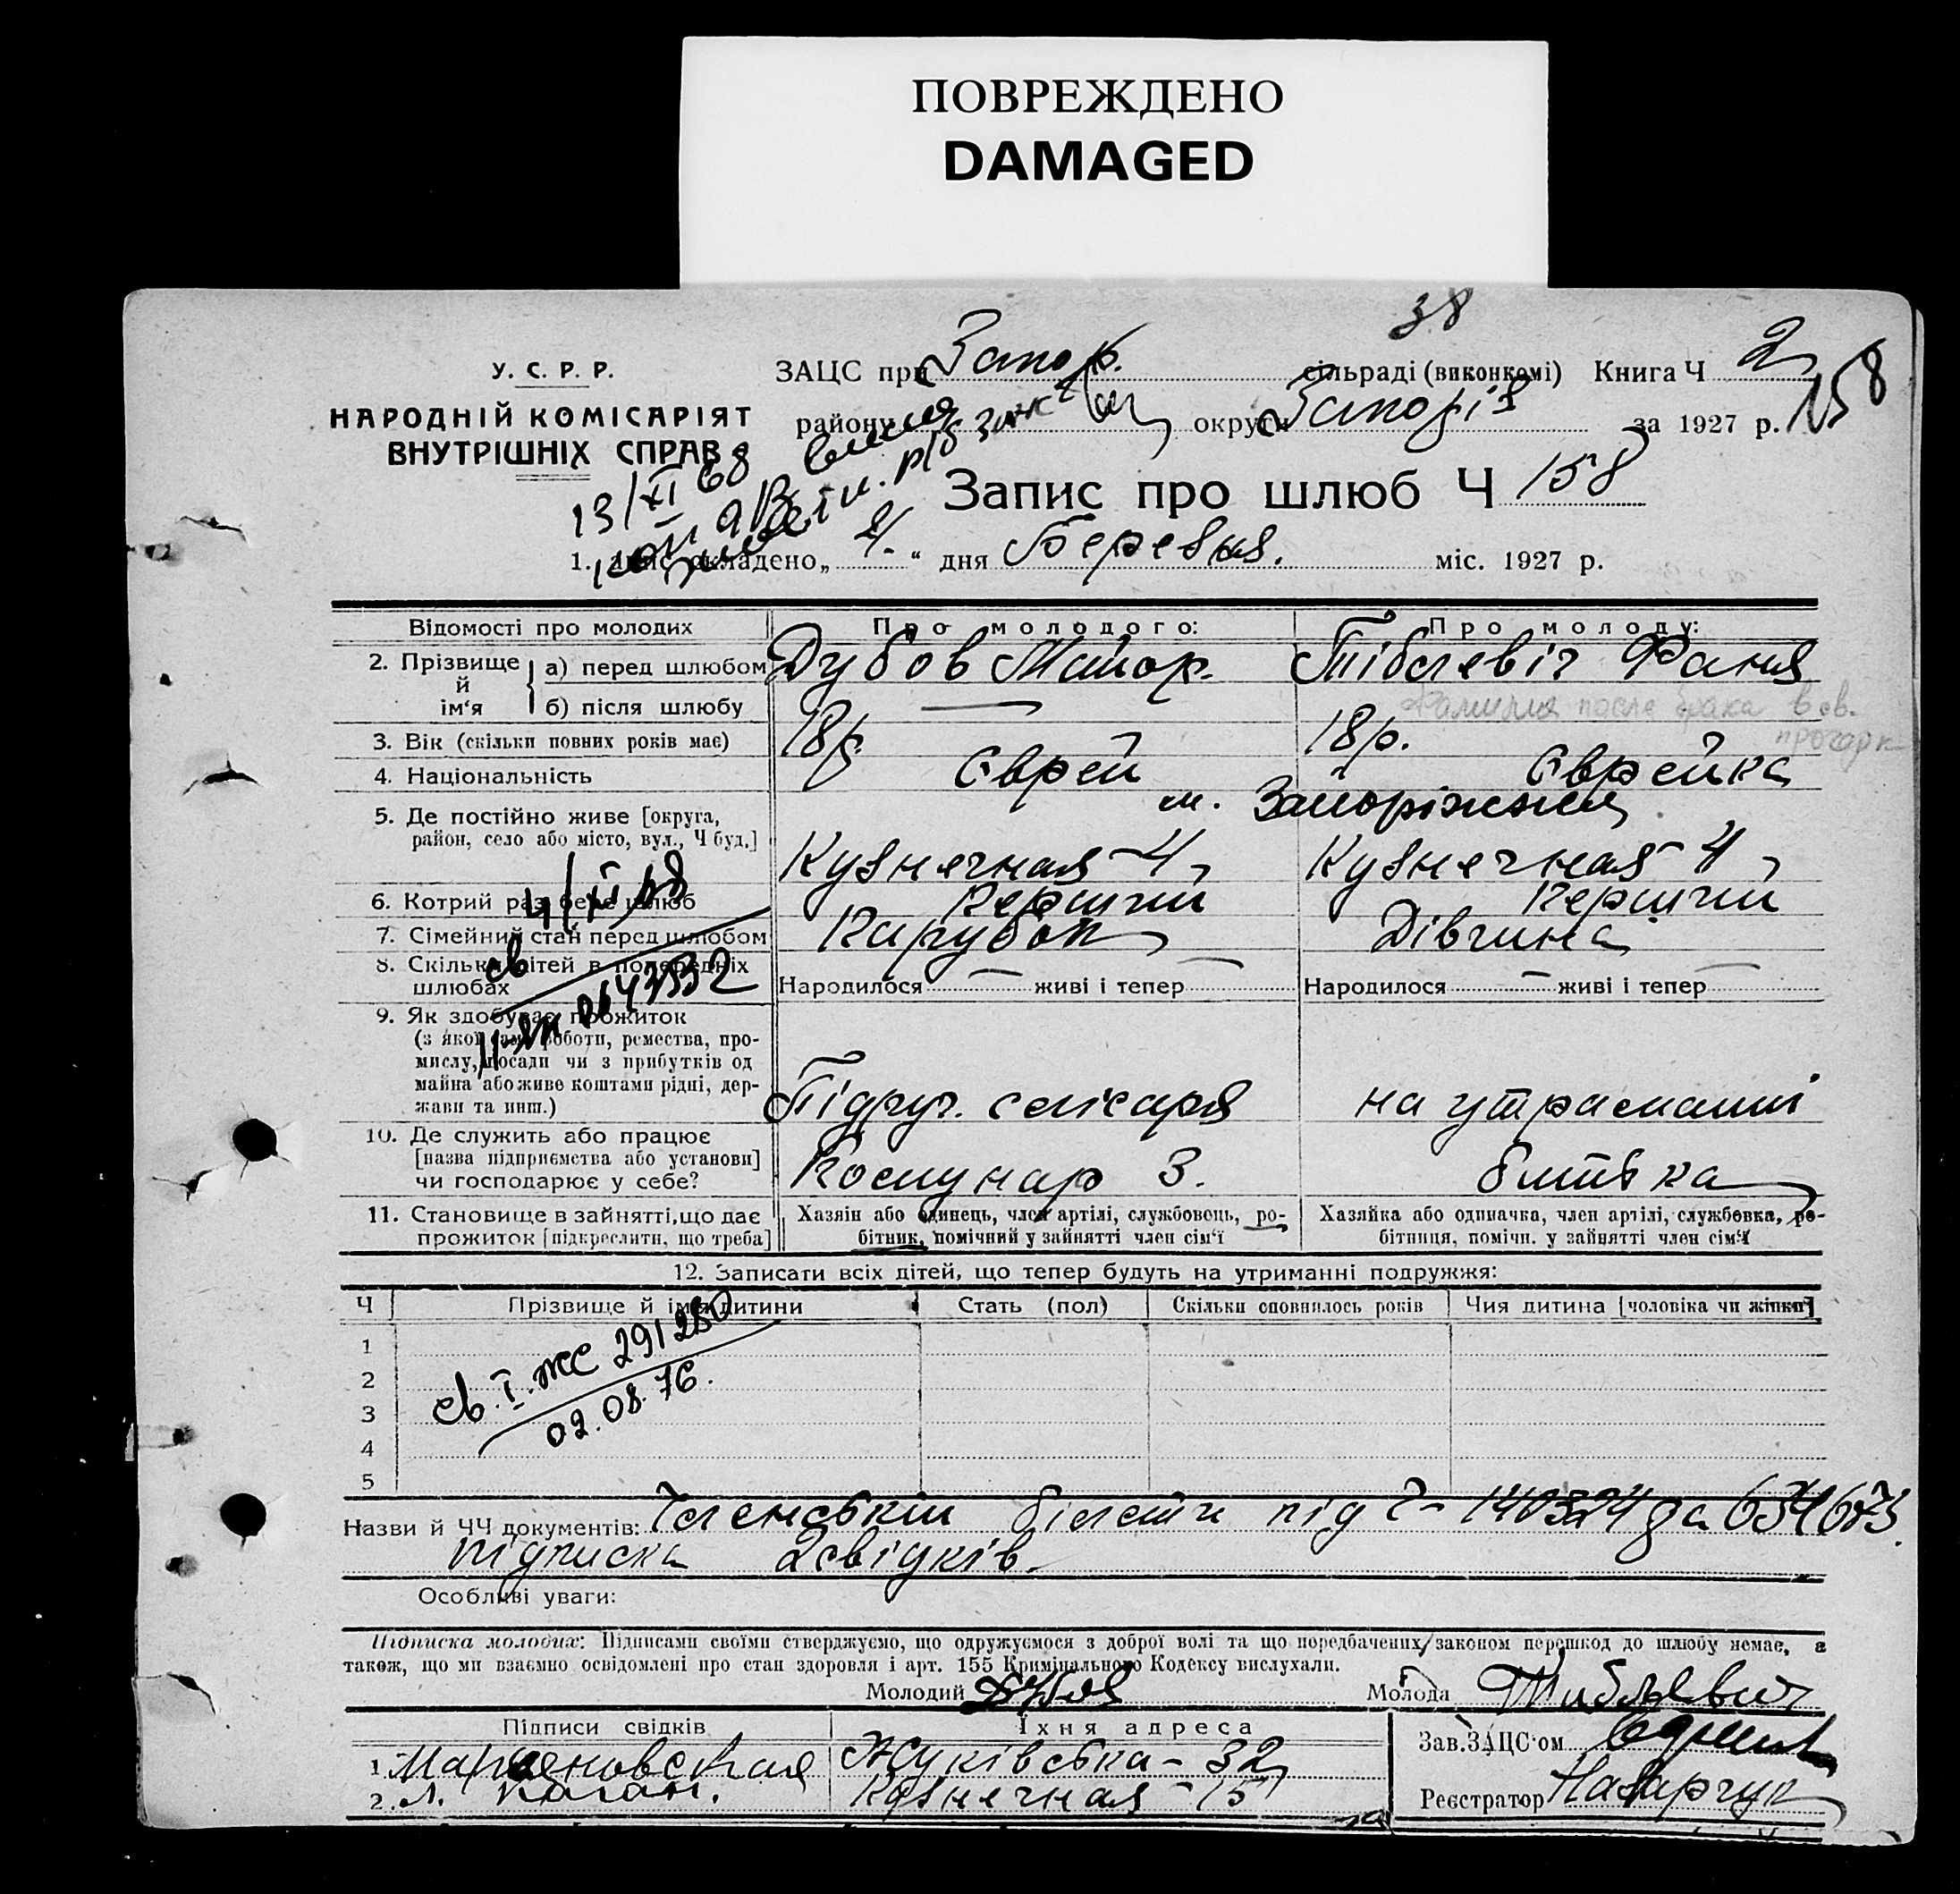 ПОВРЕЖДЕНО
DAMAGED
38
У. С. Р. Р.
НАРОДНІЙ КОМІСАРІЯТ
ВНУТРІШНІХ СПРАВ
ЗАЦС при Запор. сільраді (виконкомі) Книга Ч 2
району округи Запоріз за 1927 р. 158
13/XI 68
Запис про шлюб Ч 158
1. Запис складено „ 4. “ дня Березня. міс. 1927 р.
Відомості про молодих Про молодого: Про молоду:
2. Прізвище й ім‘я
а) перед шлюбом Дубов Майор. Тібілевіч Фаня
б) після шлюбу — Фамилия после брака в св.
3. Вік (скільки повних років має) 18 р. 18 р.
4. Національність Єврей Єврейка
м. Запоріжжя
5. Де постійно живе [округа, район, село або місто, вул., Ч буд.] Кузнечная - 4 Кузнечная - 4
6. Котрий раз бере шлюб Перший Перший
4/XI 68
7. Сімейний стан перед шлюбом Парубок Дівчина
8. Скільки дітей в попередніх шлюбах Народилося — живі і тепер — Народилося — живі і тепер —
св
9. Як здобуває прожиток
(з якої саме роботи, ремества, про-
мислу, посади чи з прибутків од
майна або живе коштами рідні, дер-
жави та инш.) Підруч. слюсаря на утриманні
10. Де служить або працює
[назва підприємства або установи]
чи господарює у себе? Комунар З. батька
11. Становище в зайнятті, що дає
прожиток [підкреслити, що треба]
Хазяїн або одинець, член артілі, службовець, ро-
бітник, помічний у зайнятті член сім‘ї
Хазяйка або одиначка, член артілі, службовка, ро-
бітниця, помічн. у зайнятті член сім‘ї
12. Записати всіх дітей, що тепер будуть на утриманні подружжя:
Ч Прізвище й ім‘я дитини Стать (пол) Скільки сповнилось років Чия дитина [чоловіка чи жінки]
1
2
3
4
5
св. I. ЖС 291280
02.08.76.
Назви й ЧЧ документів: Членський білети під Ч - 140324 да 634673.
підписка 2 свідків.
Особливі уваги:
Підписка молодих: Підписами своїми стверджуємо, що одружуємося з доброї волі та що передбачених законом перешкод до шлюбу немає, а
також, що ми взаємно освідомлені про стан здоров‘я і арт. 155 Кримінального Кодексу вислухали.
Молодий Дубов Молода Тибилевич
Підписи свідків Їхня адреса
1. Марьеновская Жуківська - 32
2. Л. Каган. Кузнечная - 15
Зав. ЗАЦС‘ом
Реєстратор Назарчук